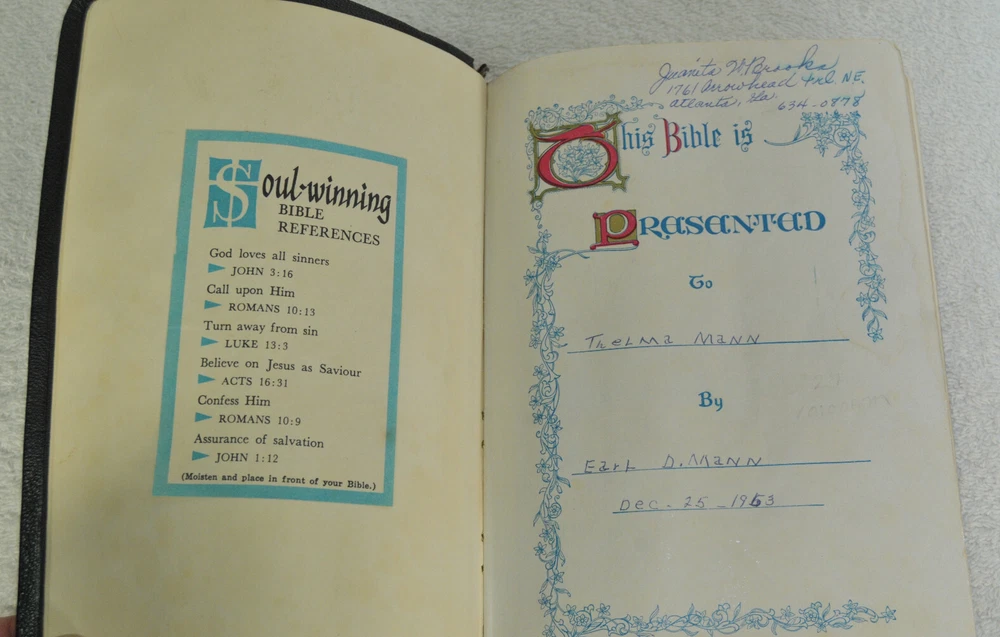 Soul-winning
BIBLE
REFERENCES
God loves all sinners
JOHN 3:16
Call upon Him
ROMANS 10:13
Turn away from sin
LUKE 13:3
Believe on Jesus as Saviour
ACTS 16:31
Confess Him
ROMANS 10:9
Assurance of salvation
JOHN 1:12
(Moisten and place in front of your Bible.)
Juanita W. Brooks
1761 Arrowhead Trl. NE.
Atlanta, Ga.
634-0878
This Bible is
PRESENTED
To
Thelma Mann
By
Earl D. Mann
Dec. 25 - 1963